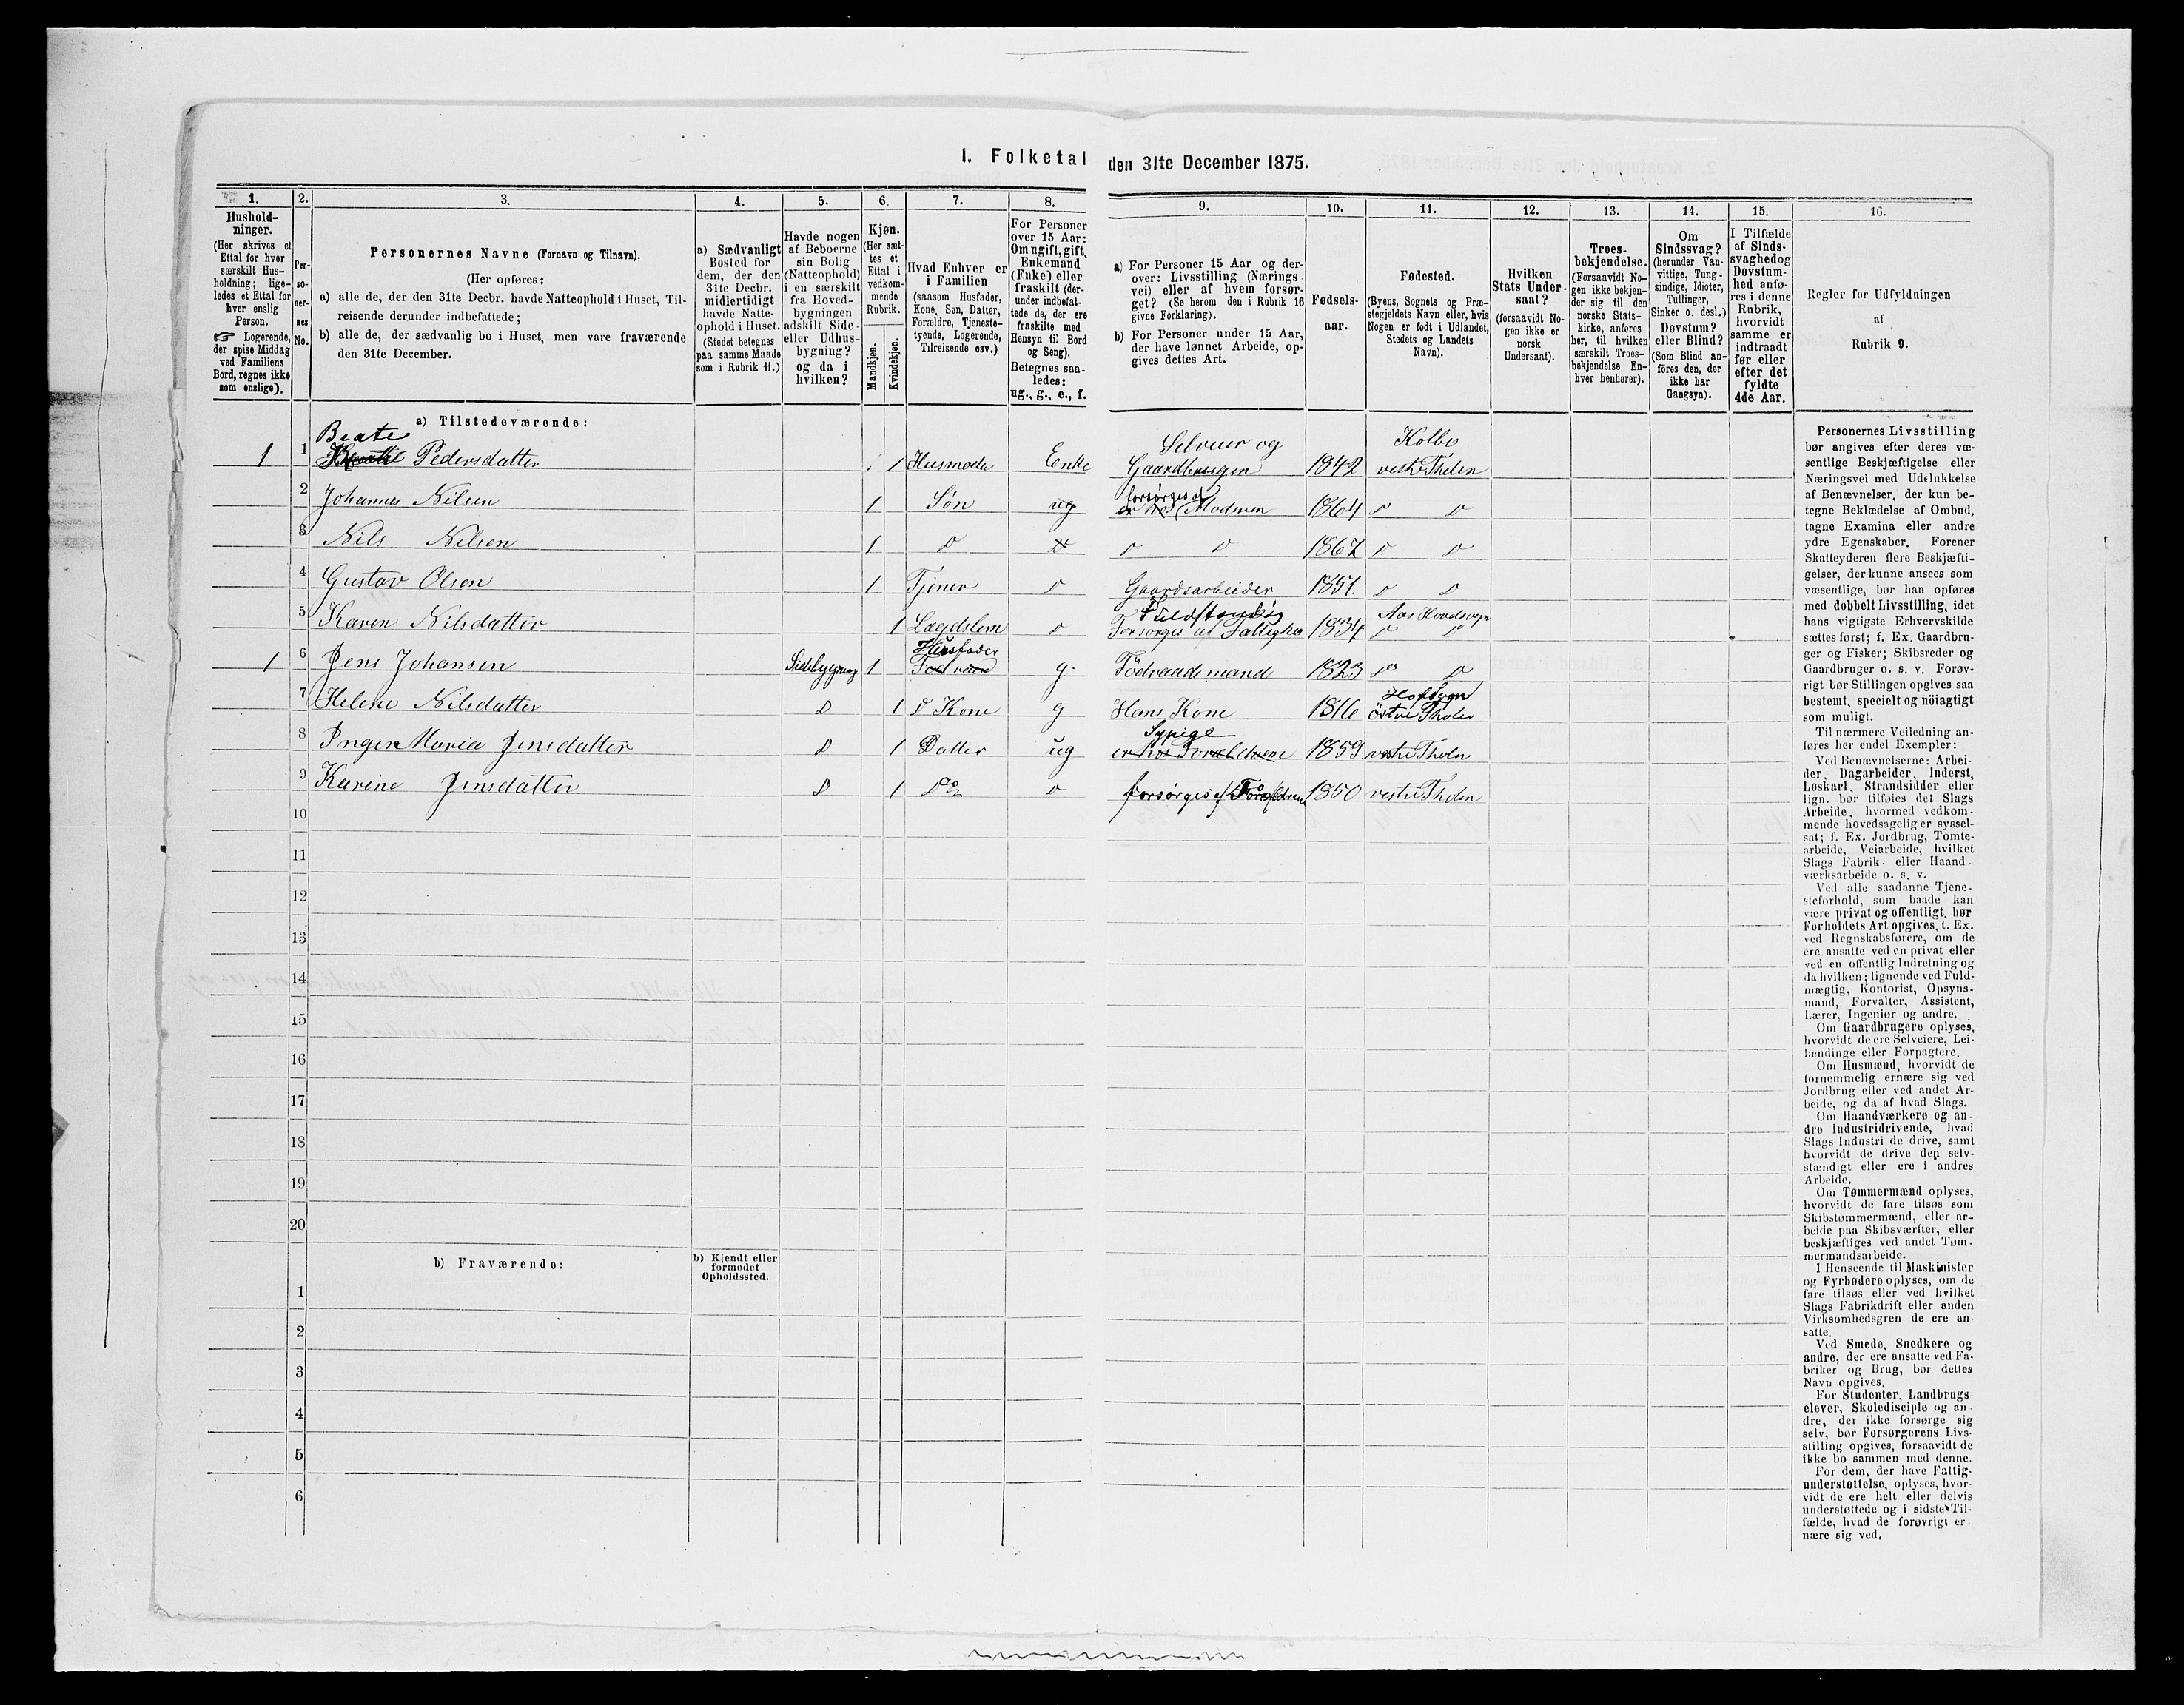 I. Folketal den 31te December 1875.
1. 2. 3. 4. 5. 6. 7. 8. 9. 10. 11. 12. 13. 14. 15. 16.
Hushold-
ninger.
(Her skrives et
Ettal for hver
særskilt Hus-
holdning; lige-
ledes et Ettal for
hver enslig
Person.
☞ Logerende,
der spise Middag
ved Familiens
Bord, regnes ikke
som enslige).
Per-
so-
ner-
nes
No.
Personernes Navne (Fornavn og Tilnavn).
(Her opføres:
a) alle de, der den 31te Decbr. havde Natteophold i Huset, Til-
reisende derunder indbefattede;
b) alle de, der sædvanlig bo i Huset, men vare fraværende
den 31te December.
a) Sædvanligt
Bosted for
dem, der den
31te Decbr.
midlertidigt
havde Natte-
ophold i Huset.
(Stedet betegnes
paa samme Maade
som i Rubrik 11.)
Havde nogen
af Beboerne
sin Bolig
(Natteophold)
i en særskilt
fra Hoved-
bygningen
adskilt Side-
eller Udhus-
bygning?
og da i
hvilken?
Kjøn.
(Her sæt-
tes et
Ettal i
vedkom-
mende
Rubrik.
Mandkjøn.
Kvindekjøn.
Hvad Enhver er
i Familien
(saasom Husfader,
Kone, Søn, Datter,
Forældre, Tjeneste-
tyende, Logerende,
Tilreisende osv.)
For Personer
over 15 Aar:
Om ugift, gift,
Enkemand
(Enke) eller
fraskilt (der-
under indbefat-
tede de, der ere
fraskilte med
Hensyn til Bord
og Seng).
Betegnes saa-
ledes:
ug., g., e., f.
a) For Personer 15 Aar og der-
over: Livsstilling (Nærings-
vei) eller af hvem forsør-
get? (Se herom den i Rubrik 16
givne Forklaring).
b) For Personer under 15 Aar,
der have lønnet Arbeide, op-
gives dettes Art.
Fødsels-
aar.
Fødested.
(Byens, Sognets og Præ-
stegjeldets Navn eller, hvis
Nogen er født i Udlandet,
Stedets og Landets
Navn).
Hvilken
Stats Under-
saat?
(forsaavidt No-
gen ikke er
norsk
Undersaat).
Troes-
bekjendelse.
(Forsaavidt No-
gen ikke bekjen-
der sig til den
norske Stats-
kirke, anføres
her, til hvilken
særskilt Troes-
bekjendelse En-
hver henhører).
Om
Sindssvag?
(herunder Van-
vittige, Tung-
sindige, Idioter,
Tullinger,
Sinker o. desl.)
Døvstum?
eller Blind?
(Som Blind an-
føres den, der
ikke har
Gangsyn).
I Tilfælde
af Sinds-
svaghed og
Døvstum-
hed anfø-
res i denne
Rubrik,
hvorvidt
samme er
indtraadt
før eller
efter det
fyldte
4de Aar.
Regler for Udfyldningen
af
Rubrik 9.
a) Tilstedeværende:
Beate Selveier og Kolbo
1 1 Pedersdatter 1 Husmoder Enke Gaardbrugen 1842 vestre Tholen
forsørges af
2 Johannes Nilsen 1 Søn ug er hos Moderen 1864 D D
3 Nils Nilsen 1 D D D D 1867 D D
4 Gustav Olsen 1 Tjener D Gaardsarbeider 1851. D D
Fuldstændig Aas Hovedsogn
5 Karen Nilsdatter 1 Lægdslem D Forsørges af 1834 D D
Husfader
1 6 Jens Johansen Sidebygning 1 g. Födraadsmand 1823 D D
Hofsogn
7 Helene Nilsdatter D 1 D Kone g Hans Kone 1816 östre Tholen
Sypige
8 Inger Maria Jensdatter D 1 Datter ug er hos Forældrene 1859 vestre Tholen
9 Karine Jensdatter D 1 Do D forsørges af Forældrene 1850 vestre Tholen
10
11
12
13
14
15
16
17
18
19
20
b) Fraværende:
b) Kjendt eller
formodet
Opholdssted.
1
2
3
4
5
6
Personernes Livsstilling
bør angives efter deres væ-
sentlige Beskjæftigelse eller
Næringsvei med Udelukkelse
af Benævnelser, der kun be-
tegne Beklædelse af Ombud,
tagne Examina eller andre
ydre Egenskaber. Forener
Skatteyderen flere Beskjæfti-
gelser, der kunne ansees som
væsentlige, bør han opføres
med dobbelt Livsstilling, idet
hans vigtigste Erhvervskilde
sættes først; f. Ex. Gaardbru-
ger og Fisker; Skibsreder og
Gaardbruger o. s. v. Forøv-
rigt bør Stillingen opgives saa
bestemt, specielt og nøiagtigt
som muligt.
Til nærmere Veiledning an-
føres her endel Exempler:
Ved Benævnelserne: Arbei-
der, Dagarbeider, Inderst,
Løskarl, Strandsidder eller
lign. bør tilføies det Slags
Arbeide, hvormed vedkom-
mende hovedsagelig er syssel-
sat; f. Ex. Jordbrug, Tomte-
arbeide, Veiarbeide, hvilket
Slags Fabrik- eller Haand-
værksarbeide o. s. v.
Ved alle saadanne Tjene-
steforhold, som baade kan
være privat og offentligt, bør
Forholdets Art opgives, t. Ex.
ved Regnskabsførere, om de
ere ansatte ved en privat eller
ved en offentlig Indretning og
da hvilken; lignende ved Fuld-
mægtig, Kontorist, Opsyns-
mand, Forvalter, Assistent,
Lærer, Ingeniør og andre.
Om Gaardbrugere oplyses,
hvorvidt de ere Selveiere, Lei-
lændinge eller Forpagtere.
Om Husmænd, hvorvidt de
fornemmelig ernære sig ved
Jordbrug eller ved andet Ar-
beide, og da af hvad Slags.
Om Haandværkere og an-
dre Industridrivende, hvad
Slags Industri de drive, samt
hvorvidt de drive den selv-
stændigt eller ere i andres
Arbeide.
Om Tømmermænd oplyses,
hvorvidt de fare tilsøs som
Skibstømmermænd, eller ar-
beide paa Skibsværfter, eller
beskjæftiges ved andet Tøm-
mermandsarbeide.
I Henseende til Maskinister
og Fyrbødere oplyses, om de
fare tilsøs eller ved hvilket
Slags Fabrikdrift eller anden
Virksomhedsgren de ere an-
satte.
Ved Smede, Snedkere og
andre, der ere ansatte ved Fa-
briker og Brug, bør dettes
Navn opgives.
For Studenter, Landbrugs-
elever, Skoledisciple og an-
dre, der ikke forsørge sig
selv, bør Forsørgerens Livs-
stilling opgives, forsaavidt de
ikke bo sammen med denne.
For dem, der have Fattig-
understøttelse, oplyses, hvor-
vidt de ere helt eller delvis
understøttede og i sidste Til-
fælde, hvad de forøvrigt er-
nære sig ved.